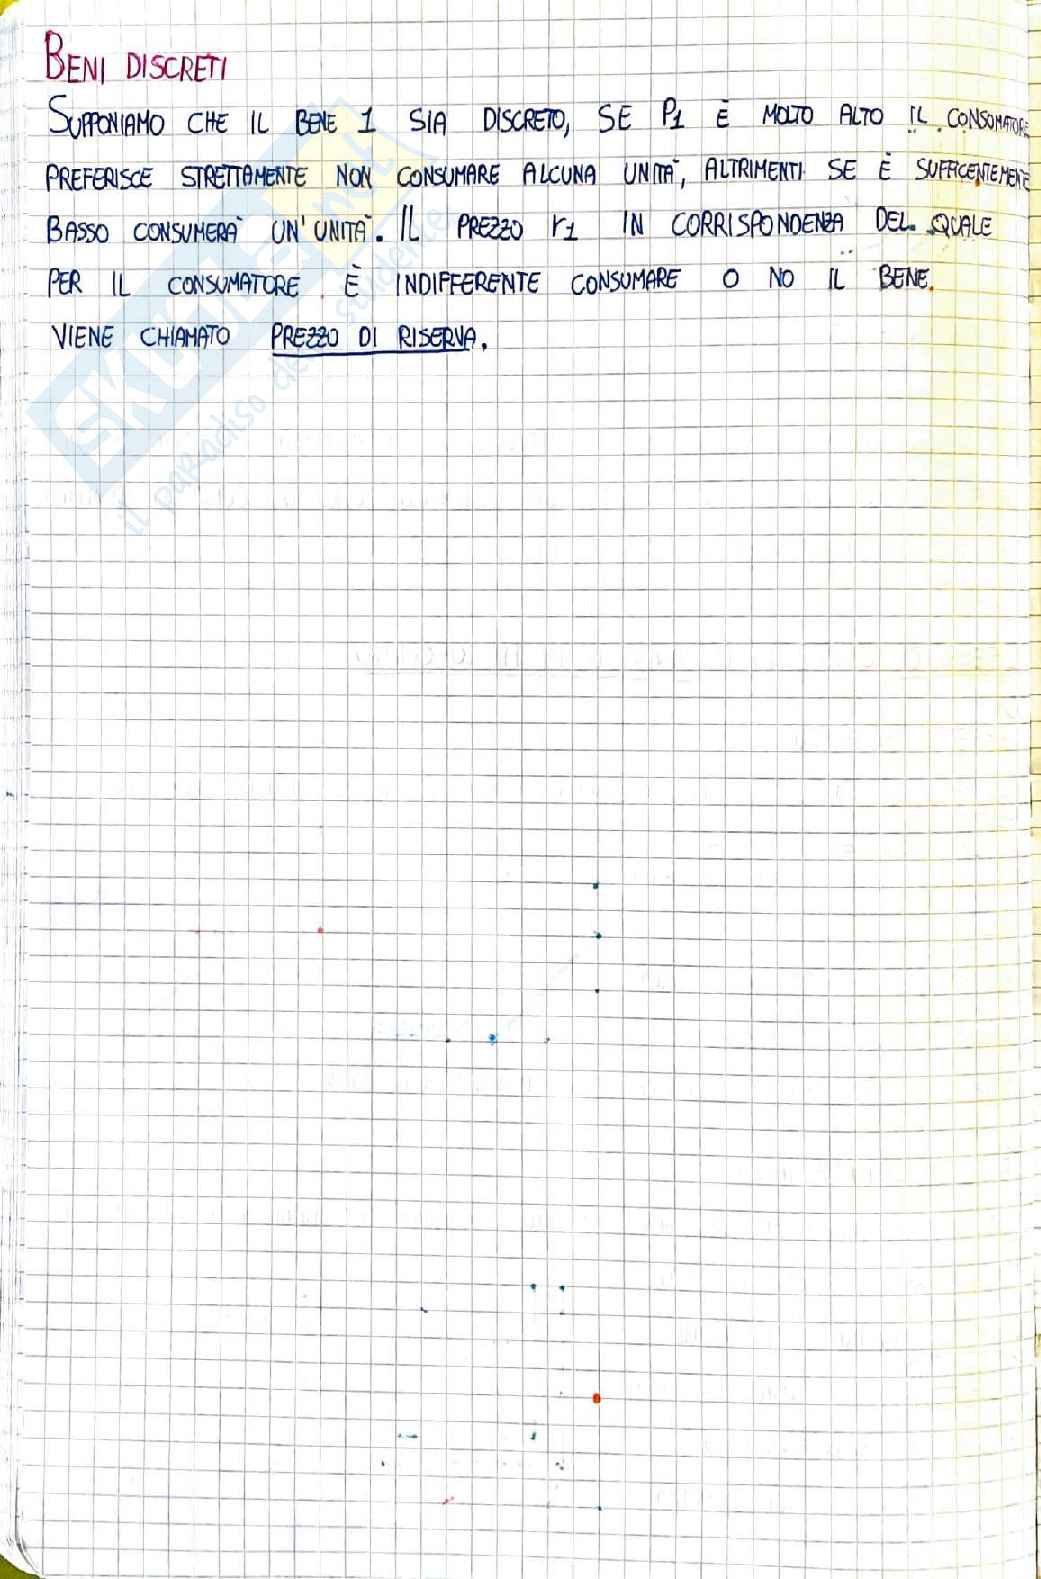 BENI DISCRETI
SUPPONIAMO CHE IL BENE 1 SIA DISCRETO, SE P1 È MOLTO ALTO IL CONSUMATORE
PREFERISCE STRETTAMENTE NON CONSUMARE ALCUNA UNITÀ, ALTRIMENTI SE È SUFFICENTEMENTE
BASSO CONSUMERÀ UN'UNITÀ. IL PREZZO r1 IN CORRISPONDENZA DEL QUALE
PER IL CONSUMATORE È INDIFFERENTE CONSUMARE O NO IL BENE.
VIENE CHIAMATO PREZZO DI RISERVA.
SKUOLA.net
il paradiso dello studente